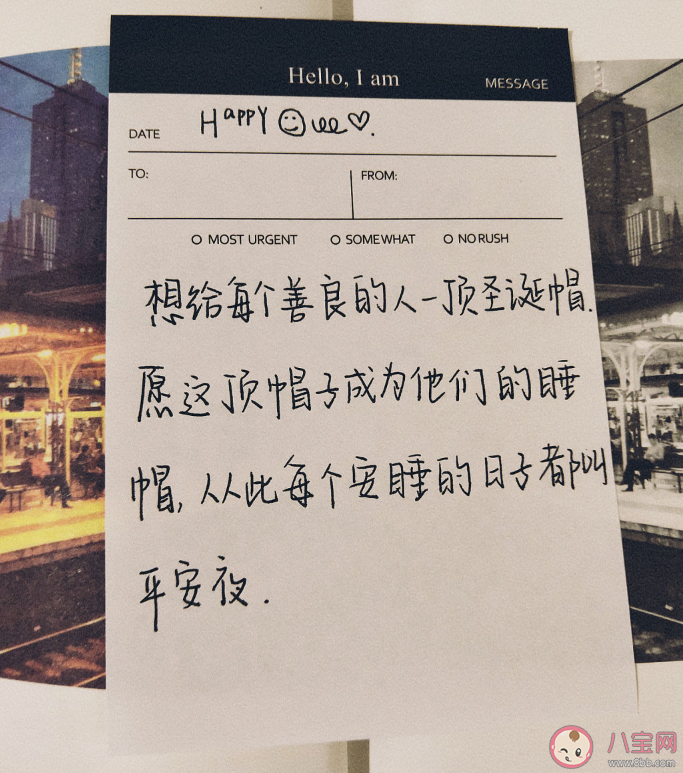 Hello, I am
MESSAGE
DATE Happy ee
TO: FROM:
MOST URGENT SOMEWHAT NO RUSH
想给每个善良的人一顶圣诞帽.
愿这顶帽子成为他们的睡
帽,从此每个安睡的日子都叫
平安夜.
八宝网
www.8bb.com